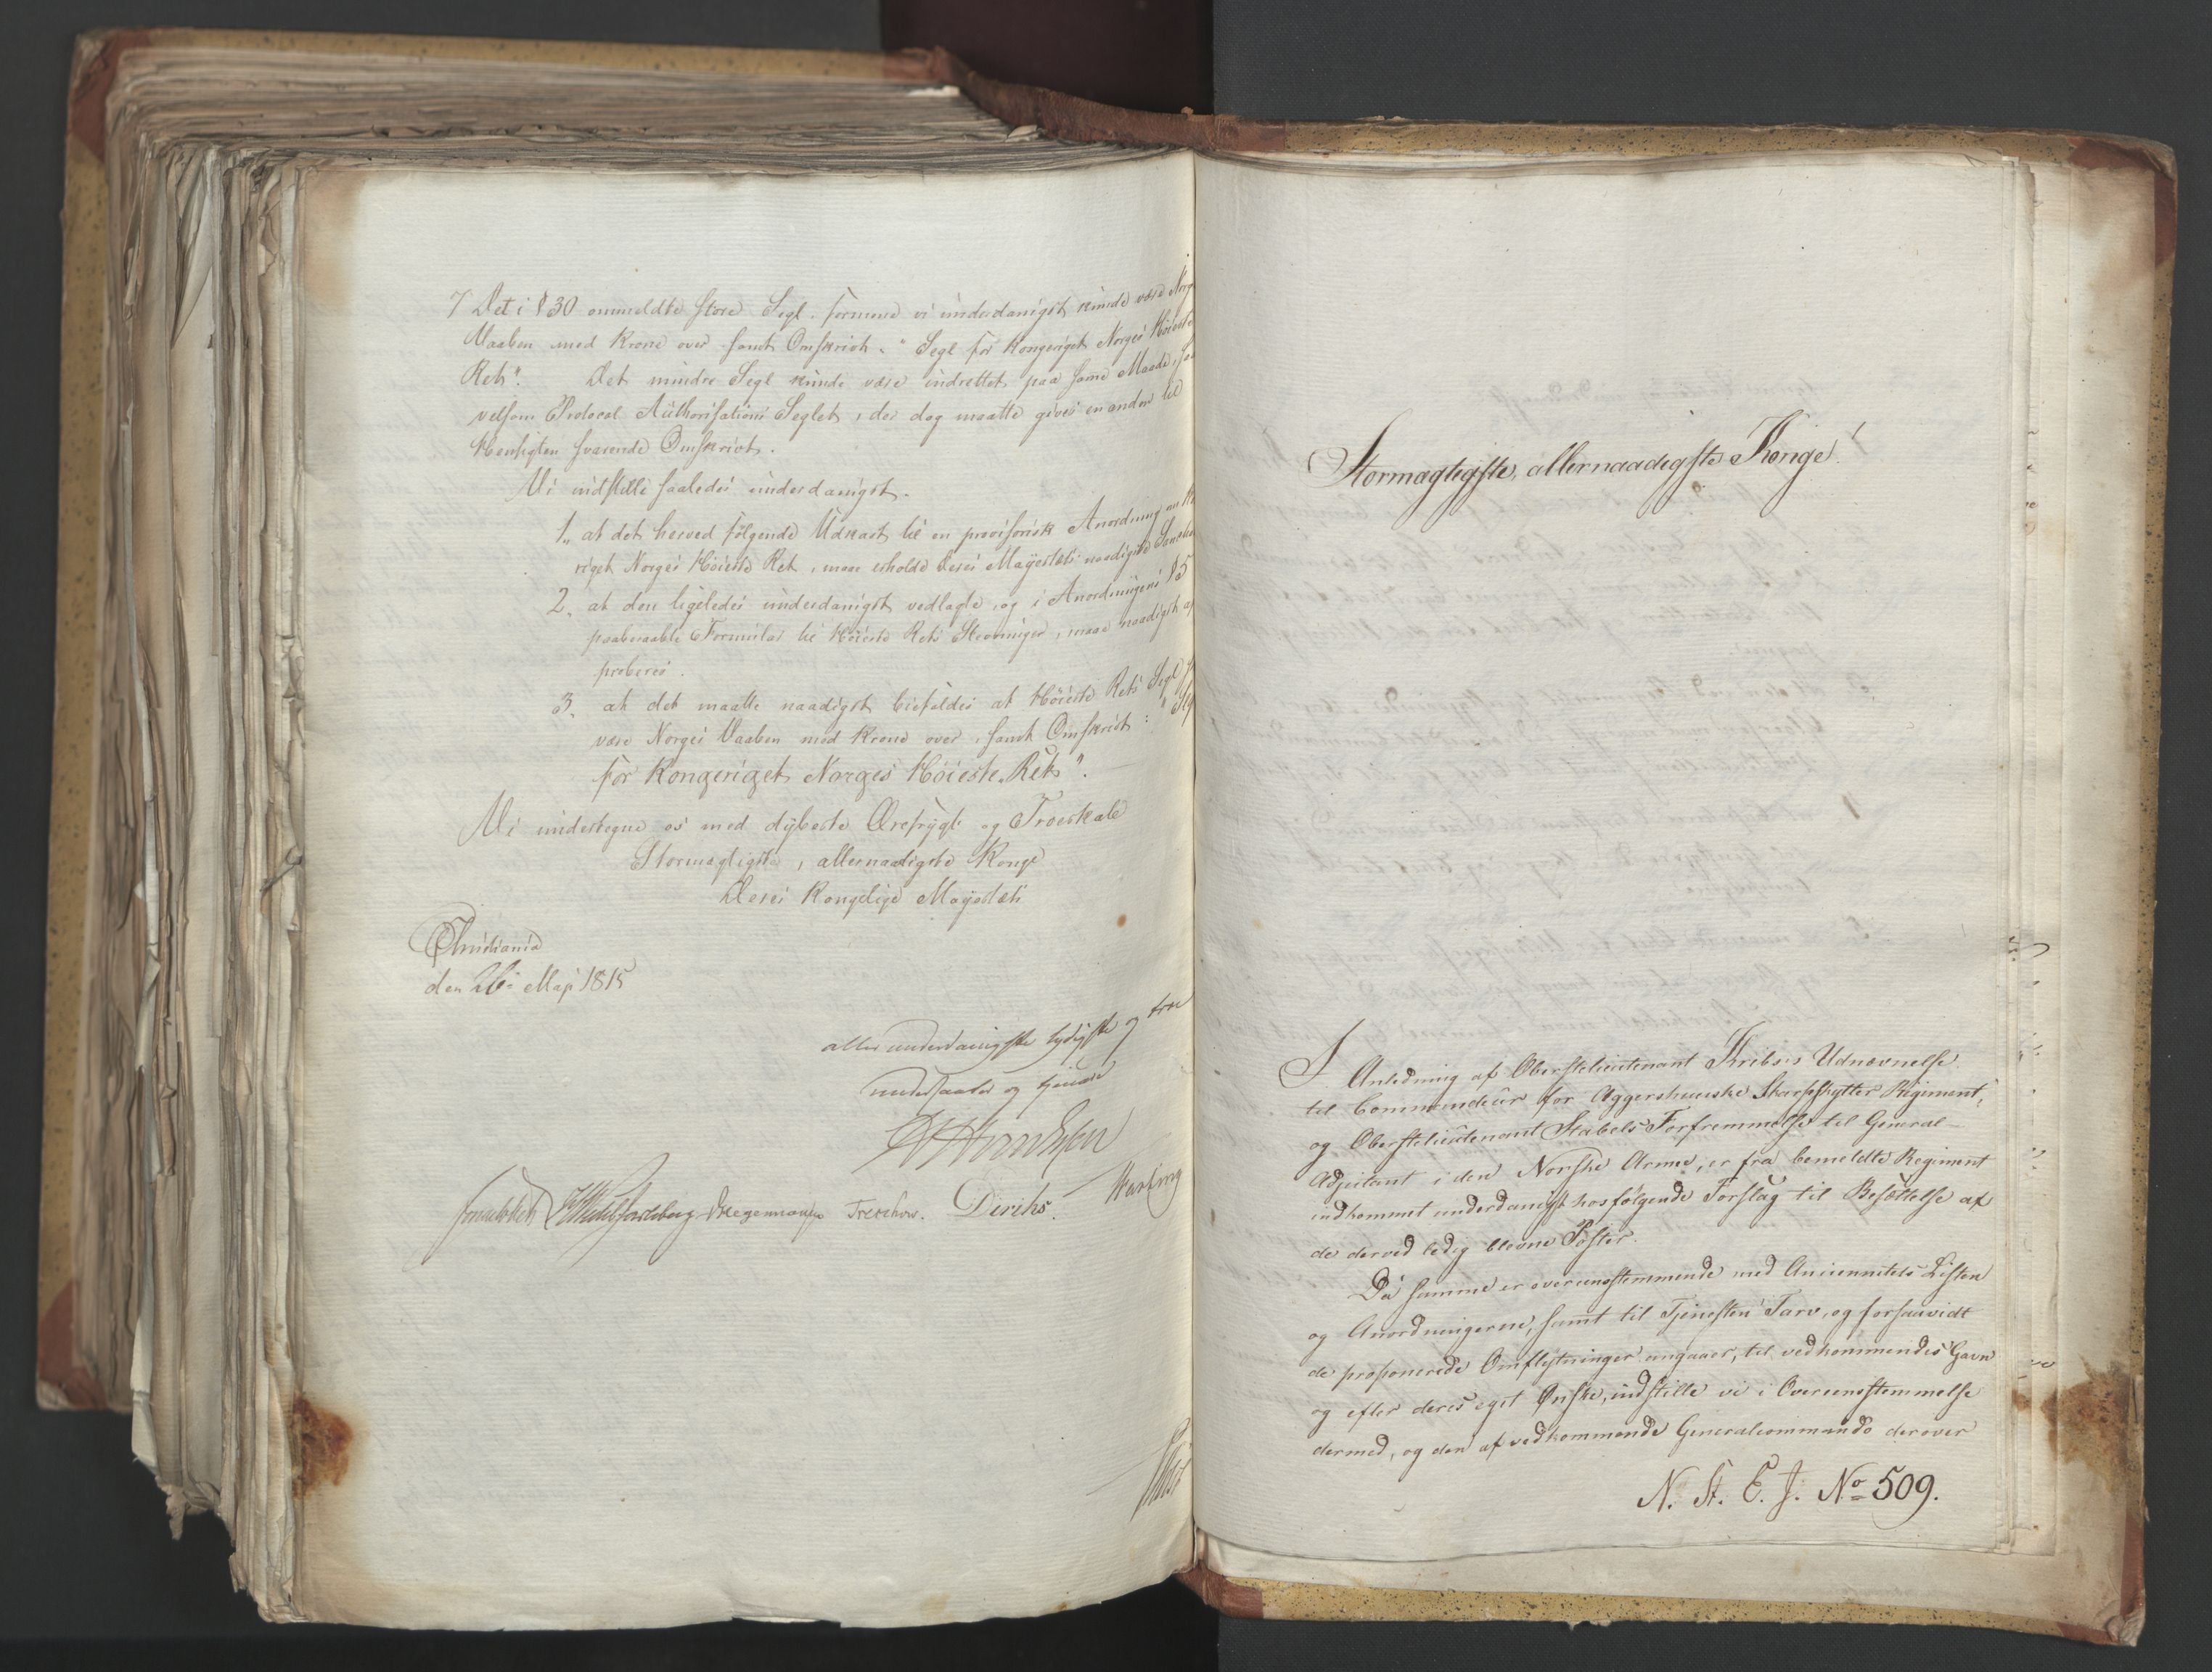 7 Det i § 30 ommeldte store Segl. formene vi underdanigst kunde være Norges
Vaaben med Krone over samt Omskrivt. "Segl for Kongeriget Norges Höieste
Ret". Det mindre Segl kunde være indrettet paa same Maade, saa
velsom Protocol Authorisations Seglet, der dog maatte gives en anden til
Hensigten svarende Omskrivt.
Vi indstille saaledes underdanigst.
1., at det herved følgende Udkast til en provisorisk Anordning
riget Norges Höieste Ret, maae erholde Deres Mayestæts naadigste
2. at den ligeledes underdanigst vedlagte, og i Anordningens § 5
paaberaabte Formular til Höieste Rets Stevninger, maae naadigst ap
proberes.
3. at det maatte naadigst biefaldes at Höieste Rets Segl
være Norges Vaaben med Krone over, samt Omskrivt: "Seg
for Kongeriget Norges Höieste Ret".
Vi undertegne os med dybeste Ærefrygt og Troeskab
Stormægtigste, allernaadigste Konge
Deres Kongelige Mayestæts
Christiania
den 26 Maji 1815
allerunderdanigste lydigste og troe
undersaatter og tjenere
Sommerhielm Hegermann Treschow. Diriks.
Stormægtigste, allernaadigste Konge!
I Anledning af Oberstelieutenant Krebs's Udnævnelse
til Commendeur for Aggershuuske Skarpskytter Regiment,
og Oberstelieutenant Stabels Forfremmelse til General-
Adjutant i den Norske Armee, er fra bemeldte Regiment
indkommet underdanigst hosfølgende Forslag til Besættelse af
de derved ledig blevne Poster.
Da samme er overeensstemmende med Anciennitets Listen
og Anordningerne, samt til Tjenesten's Tarv, og forsaavidt
de proponerede Omflytninger angaaer, til vedkommendes Gavn
og efter deres eget Ønske, indstille vi i Overeensstemmelse
dermed, og den af vedkommende Generalcommando derover
N. St. E. J. No 509.